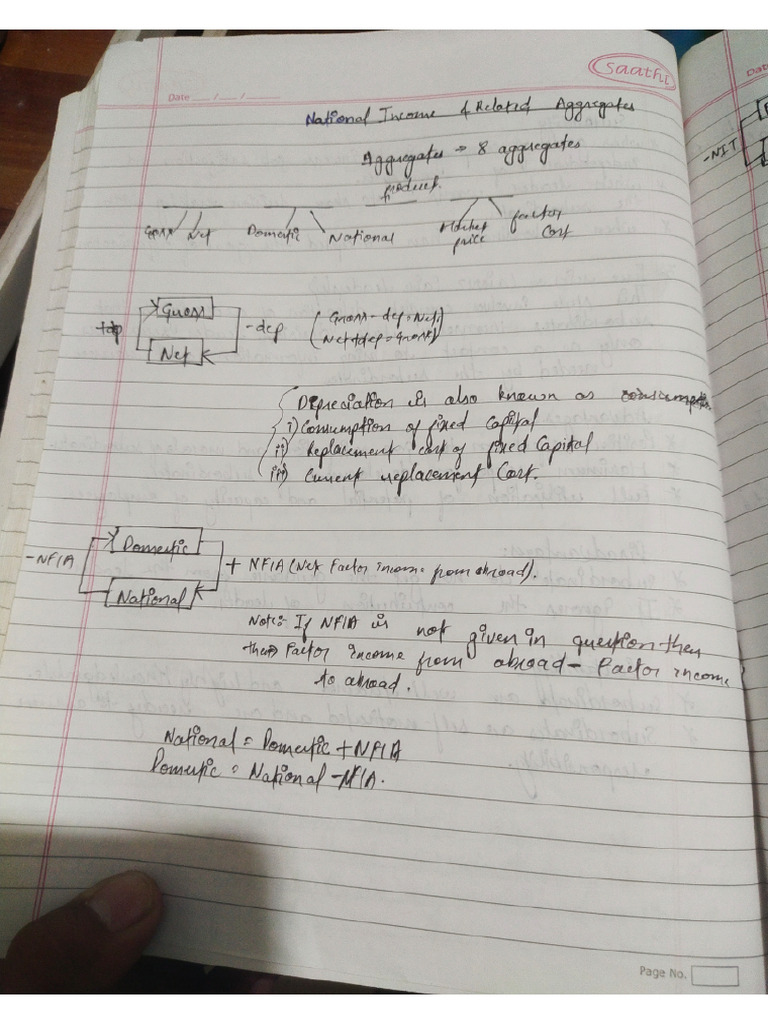 Saathi
Date __/__/____
National Income & Related Aggregates
Aggregates → 8 aggregates
product
Gross Net Domestic National Market price factor Cost
+dep Gross Net -dep (Gross - dep = Net)
(Net + dep = Gross)
Depreciation is also known as
i) Consumption of fixed Capital
ii) Replacement cost of fixed Capital
iii) Current replacement Cost.
-NFIA Domestic National + NFIA (Net Factor income from abroad).
Note:- If NFIA is not given in question then
then Factor income from abroad - Factor income
to abroad.
National = Domestic + NFIA
Domestic = National - NFIA.
Page No.
-NIT
Dat